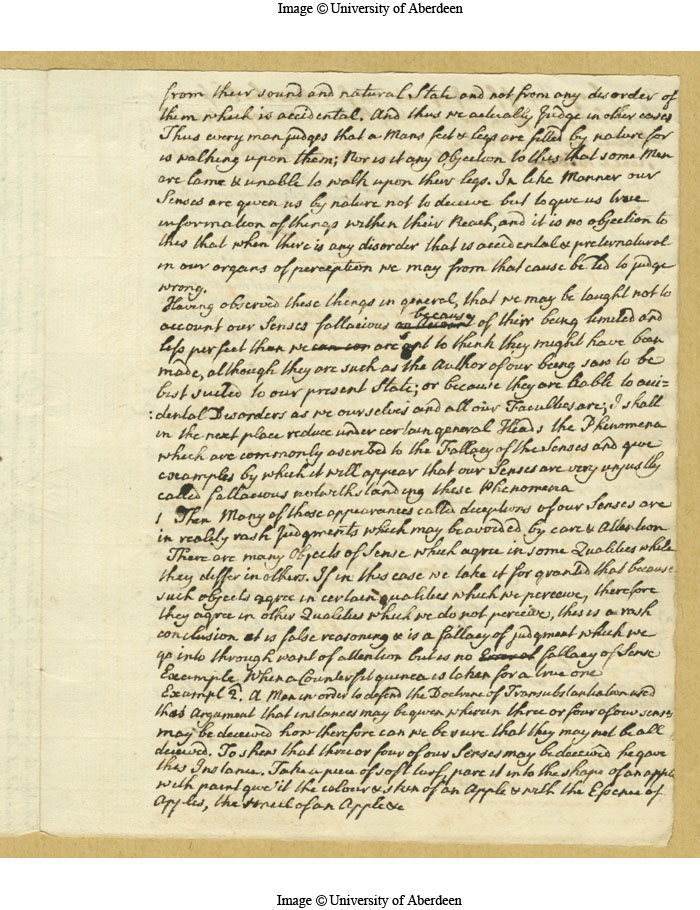 Image © University of Aberdeen
from their sound and natural State and not from any disorder of
them which is accidental. And thus we actually Judge in other cases
Thus every man judges that a Mans feet & legs are fitted by nature for
is walking upon them; Nor is it any Objection to this that some Men
are lame & unable to walk upon their legs. In like Manner our
Senses are given us by nature not to deceive but to give us true
information of things within their Reach, and it is no objection to
this that when there is any disorder that is accidental & preternatural
in our organs of perception we may from that cause be led to judge
wrong.
Having observed these things in general, that we may be taught not to
because
account our Senses fallacious on account of their being limited and
less perfect than we can con are apt to think they might have been
made, although they are such as the Author of our being saw to be
best suited to our present State; or because they are liable to acci=
:dental Disorders as we ourselves and all our Faculties are; I shall
in the next place reduce under certain general Heads the Phenomena
which are commonly ascribed to the Fallacy of the Senses and give
examples by which it will appear that our Senses are very unjustly
called fallacious notwithstanding these Phenomena
1 Then Many of those appearances called deceptions of our Senses are
in reality rash Judgments which may be avoided by care & Attention
There are many Objects of Sense which agree in some Qualities while
they differ in others. If in this case we take it for granted that because
such objects agree in certain qualities which we perceive, therefore
they agree in other Qualities which we do not perceive, this is a rash
conclusion it is false reasoning & is a fallacy of judgment which we
go into through want of attention but is no fallacy of Sense
Example. When a Counterfit guinea is taken for a true one
Exampl 2. A Man in order to defend the Doctrine of Transubstantiation used
this Argument that instances may be given wherein three or four of our senses
may be deceived how therefore can we be sure that they may not be all
deceived. To shew that three or four of our Senses may be deceived he gave
this Instance. Take a piece of soft turf, pare it into the shape of an apple
with paint give it the colour & skin of an Apple & with the Essence of
Apples, the smell of an Apple &c
Image © University of Aberdeen